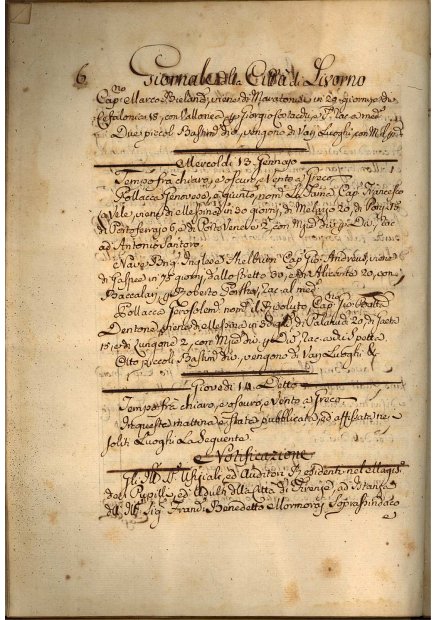 6 Giornale della Città di Livorno
Cap. Marco viene di in 29 giorni, e di
Cefalonia 18, con Vallonea Giorgio
Due piccoli Bastim. di vengono di Varj Luoghi, con
Mercoldì 13 Gennajo
Tempo frà chiaro, e oscuro, e Vento a Greco
Pollacca Genovese a quinto, nom. La Fama Cap. Francesco
viene di Messina in 30 giorni, di 20, di
di Portoferrajo 6, e di Porto Venere 2, con Mjd. div. p. Div. rac.
ad Antonio Santoro
Nave Brig. Inglese Cap. Gio: Andrews, viene
di Gaspee in 75 giorni, dallo Stretto 30, e di Alicante 20, con
Baccalari, p. Roberto Porther, rac. al med.
Pollacca Gerosolem. nom. il Risoluto Cap. Gio: Batta
Dentone, viene di Messina in giorni di 20, di Gaeta
15, e di Lungone 2, con Mjd. div. p. Div. rac. a di Spetta
Otto piccoli Bastim. div. vengono di Varj Luoghi &
Giovedì 14 Detto
Tempo frà chiaro, e oscuro, e Vento a Greco
In questa mattina è stata pubblicata, ed affissata ne
soliti Luoghi La Seguente
Notificazione
Gli Ill. SS. Ufiziali, ed Auditori Residenti nel Magis.
de Pupilli ed Adulti della Città di Firenze, ad Istanza
dell' Ill. Sig. Franc. Benedetto Mormoraj Soprassindaco